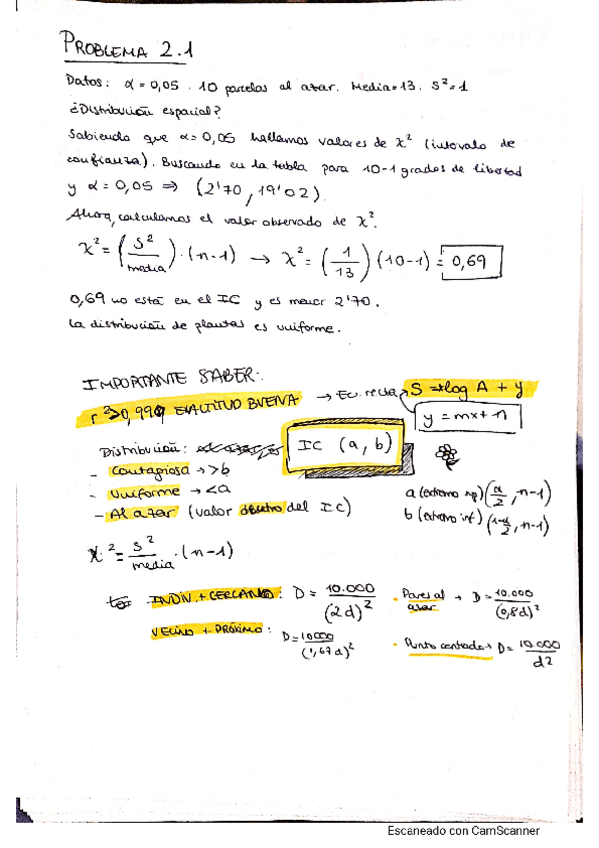 PROBLEMA 2.1
Datos: α = 0,05 . 10 parcelas al azar. Media = 13. S² = 1
¿Distribución espacial?
Sabiendo que α = 0,05 hallamos valores de χ² (intervalo de
confianza). Buscando en la tabla para 10-1 grados de libertad
y α = 0,05 ⇒ (2'70, 19'02)
Ahora, calculamos el valor observado de χ².
χ² = (S²/media) · (n-1) → χ² = (1/13) (10-1) = 0,69
0,69 no está en el IC y es menor 2'70.
La distribución de plantas es uniforme.
IMPORTANTE SABER:
r² > 0,990 EXACTITUD BUENA → Ec. recta S = *log A + y
y = mx + n
Distribución: IC (a, b)
- Contagiosa → > b
- Uniforme → < a
- Al azar (valor dentro del IC)
a (extremo sup) (α/2, n-1)
b (extremo inf) (1-α/2, n-1)
χ² = S²/media · (n-1)
INDIV. + CERCANO: D = 10.000/(2d)²
· Pares al azar → D = 10.000/(0,8d)²
VECINO + PRÓXIMO: D = 10000/(1,67d)²
· Punto centrado → D = 10.000/d²
Escaneado con CamScanner